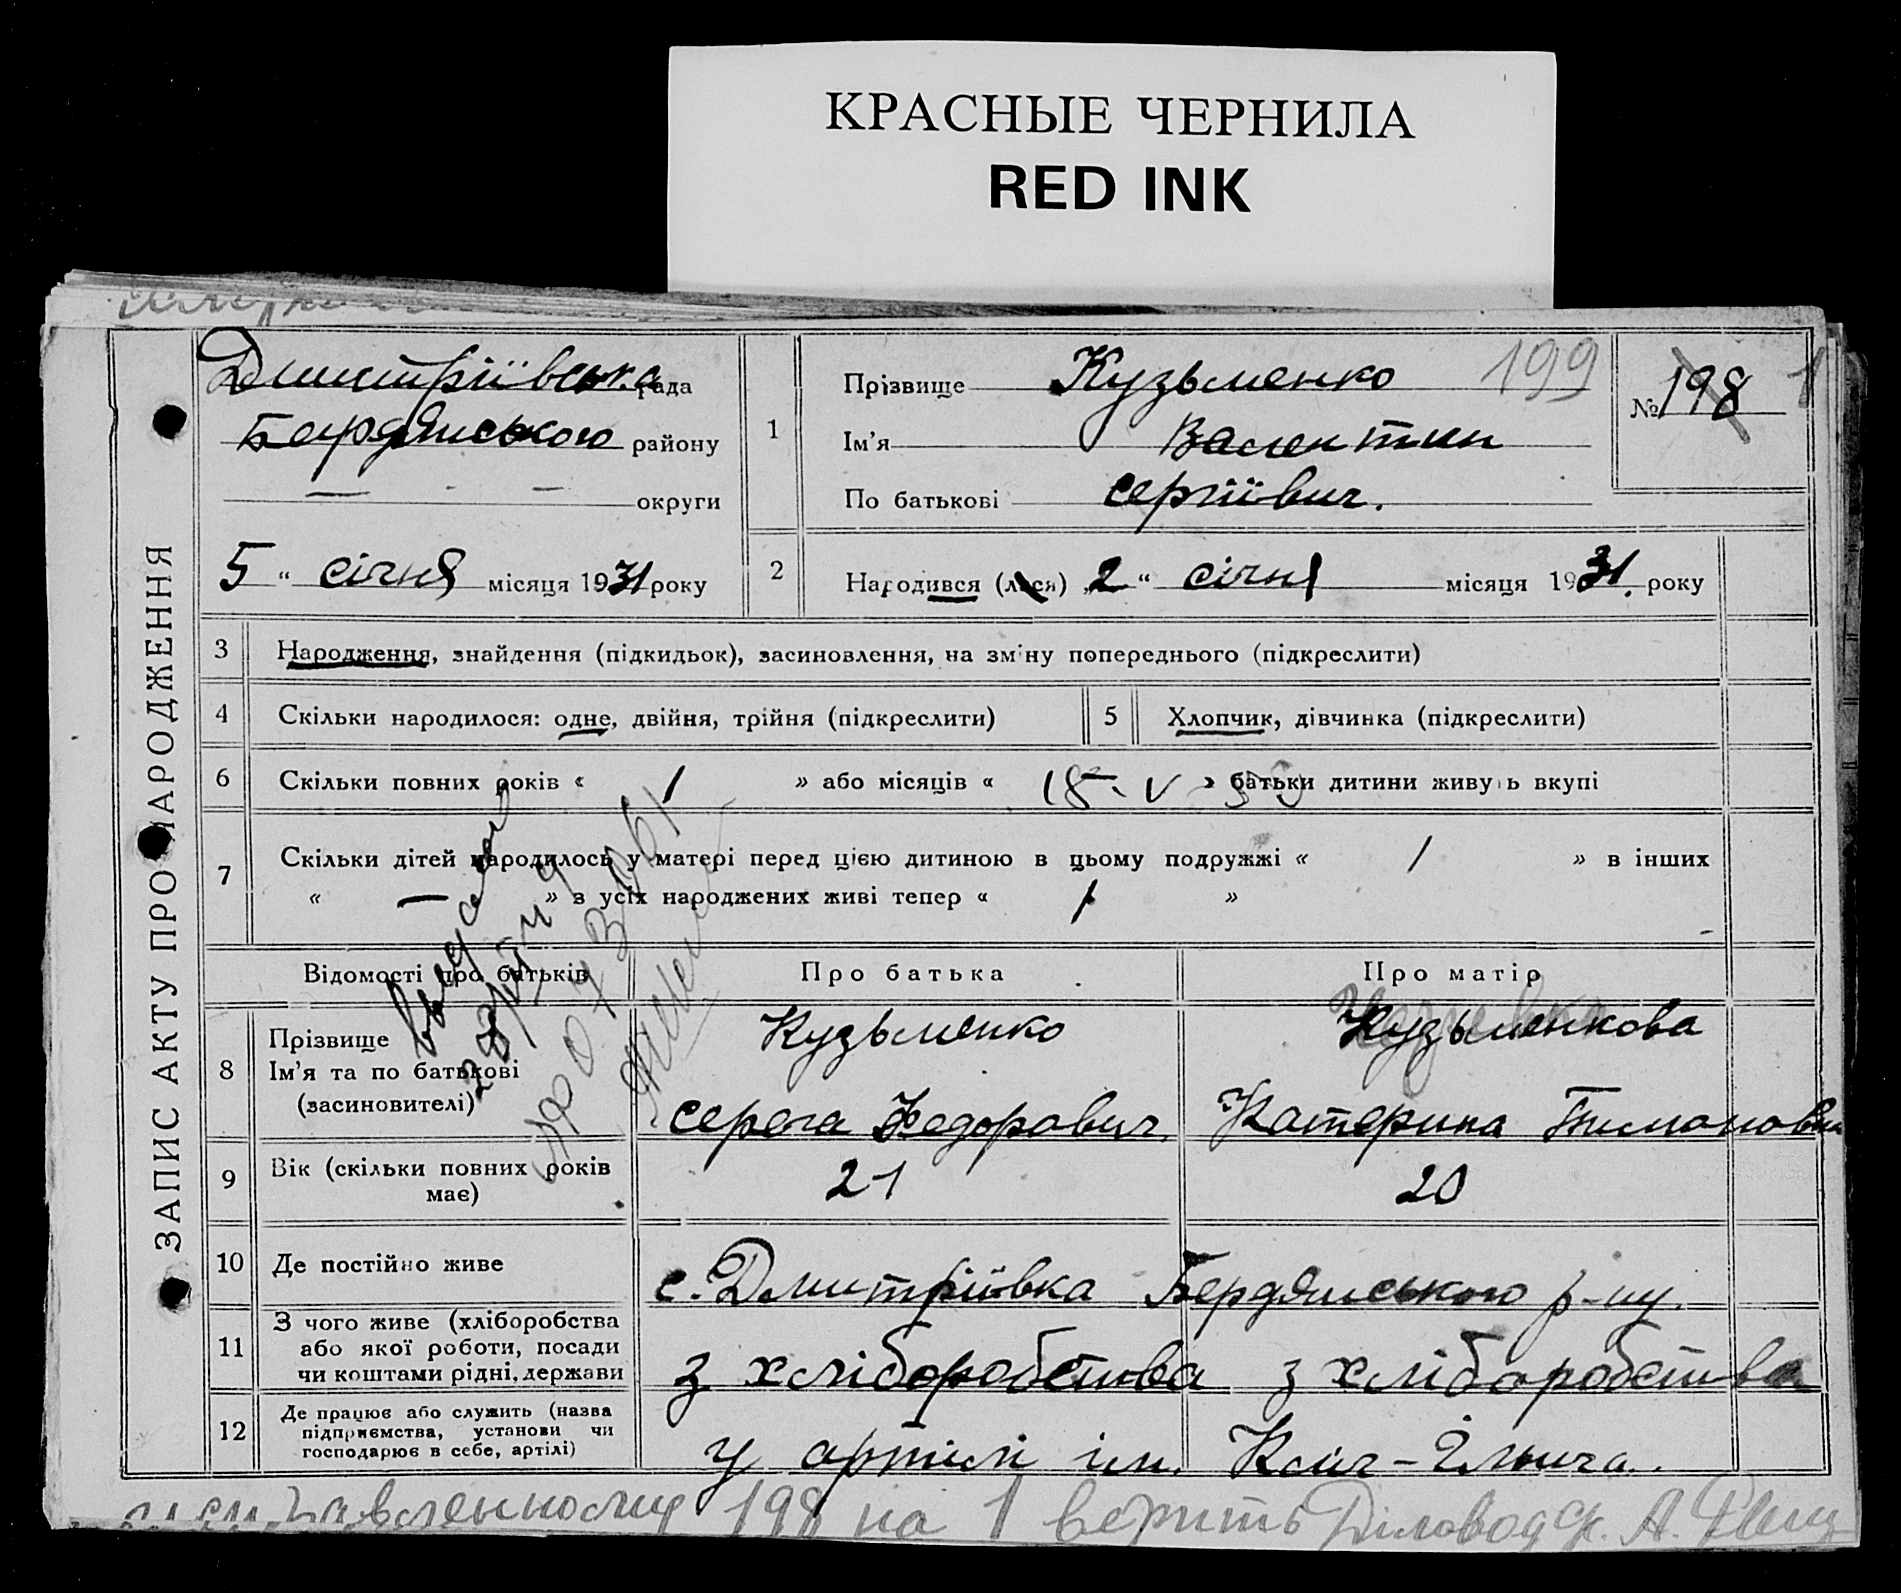 КРАСНЫЕ ЧЕРНИЛА
RED INK
ЗАПИС АКТУ ПРО НАРОДЖЕННЯ
Дмитріївська рада
Бердянського району
— - — округи
5 " січня місяця 1931 року
1
Прізвище Кузьменко 199
Ім'я Валентин
По батькові Сергіївич.
№ 198 1
2
Народився (лася) „2 " січня місяця 1931. року
3 Народження, знайдення (підкидьок), засиновлення, на зміну попереднього (підкреслити)
4 Скільки народилося: одне, двійня, трійня (підкреслити) 5 Хлопчик, дівчинка (підкреслити)
6 Скільки повних років « 1 » або місяців « » батьки дитини живуть вкупі
7 Скільки дітей народилось у матері перед цією дитиною в цьому подружжі « 1 » в інших
« — » з усіх народжених живі тепер « 1 »
Відомості про батьків Про батька Про матір
8 Прізвище Кузьменко Кузьменкова
Ім'я та по батькові
(засиновителі) Серега Федорович Катерина Тимановна
9 Вік (скільки повних років 21 20
має)
10 Де постійно живе с. Дмитріївка Бердянського р-ну.
11 З чого живе (хліборобства
або якої роботи, посади
чи коштами рідні, держави з хліборобства з хліборобства
12 Де працює або служить (назва
підприємства, установи чи
господарює в себе, артілі) у артілі ім. Кліч-Ілыча.
198 на 1 верить Діловод